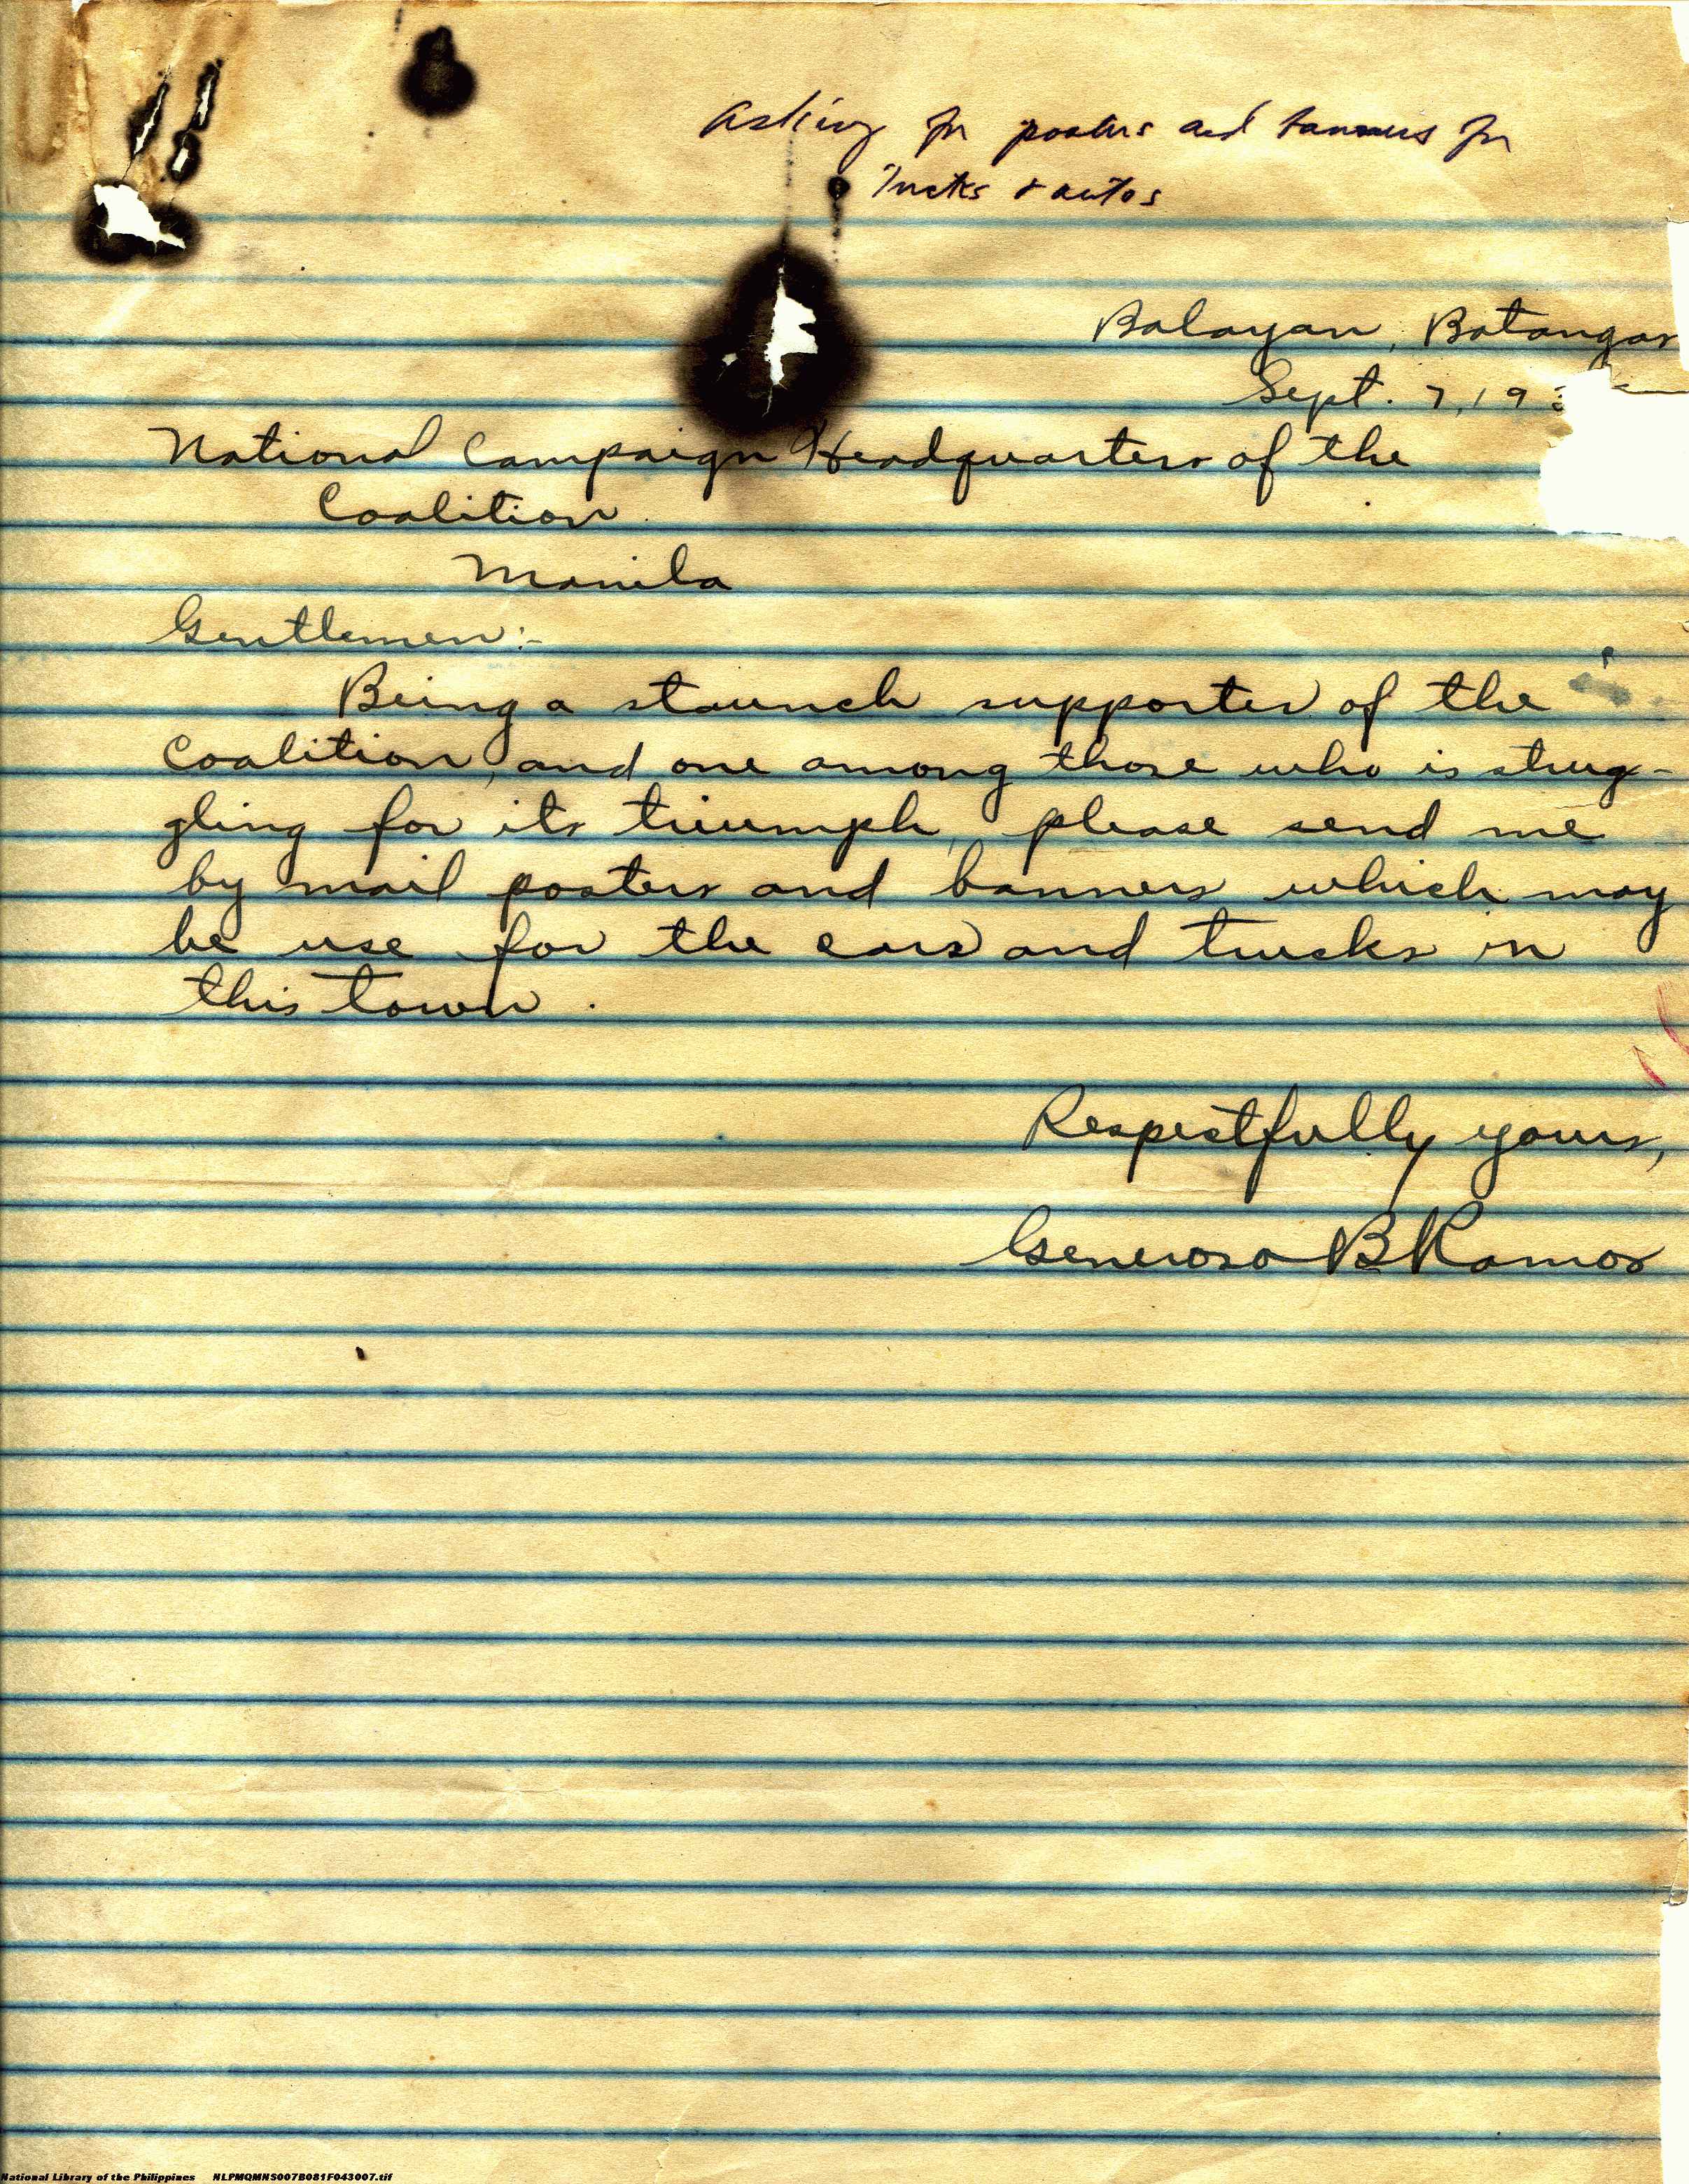 Asking for posters and banners for
trucks & autos
Balayan, Batangas
Sept. 7, 193
National Campaign Headquarters of the
Coalition
Manila
Gentlemen:-
Being a staunch supporter of the
Coalition, and one among those who is strug-
gling for its triumph, please send me
by mail posters and banners which may
be use for the cars and trucks in
this town.
Respectfully yours,
Generoso B Ramos
National Library of the Philippines NLPMQMNS007B081F043007.tif